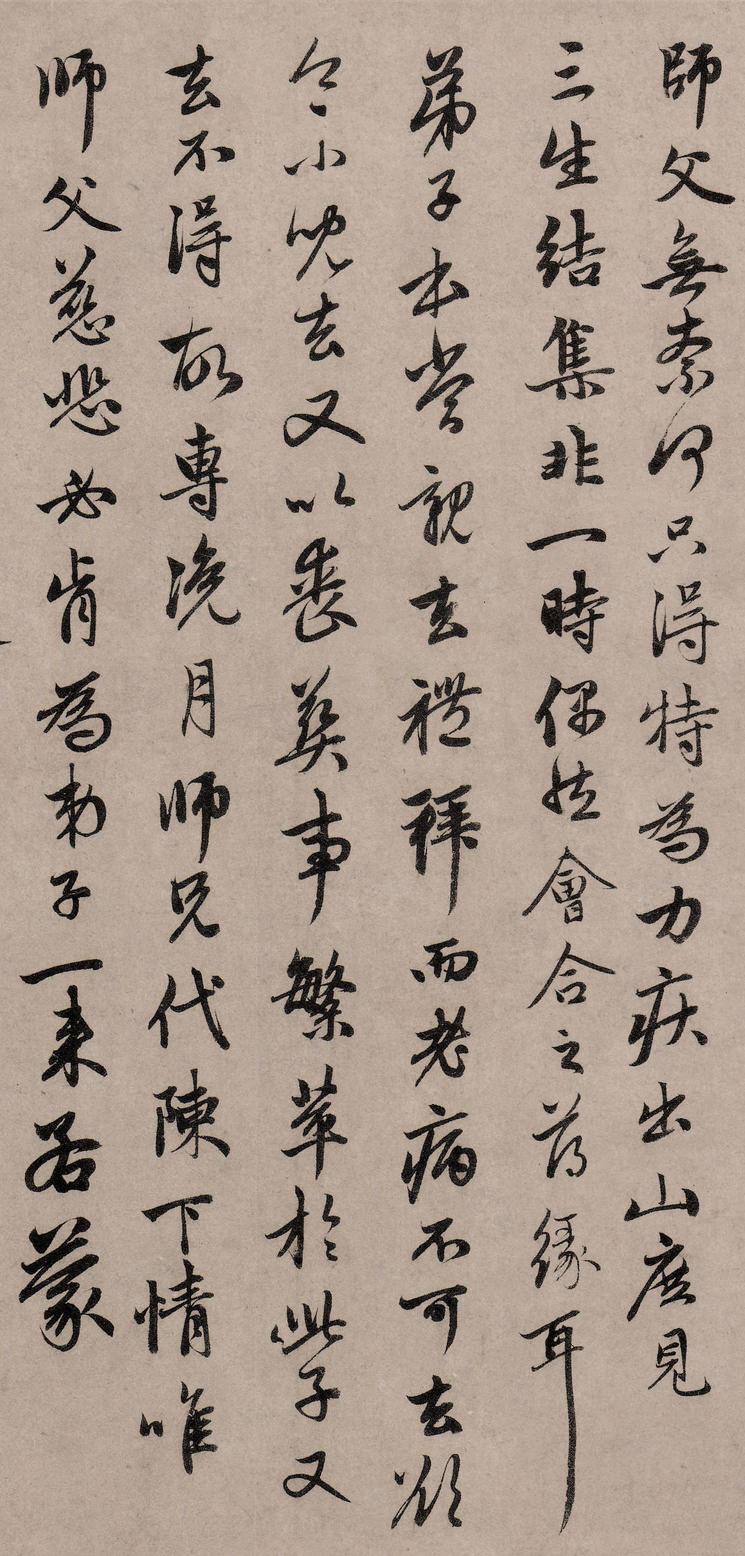 師父無柰何只得特為力疾出山庶見
三生結集非一時偶然會合之薄緣耳
弟子本當親去禮拜而老病不可去欲
令小兒去又以喪葬事繁萃於此子又
去不得故專浼月師兄代陳下情唯
師父慈悲必肯為弟子一來若蒙